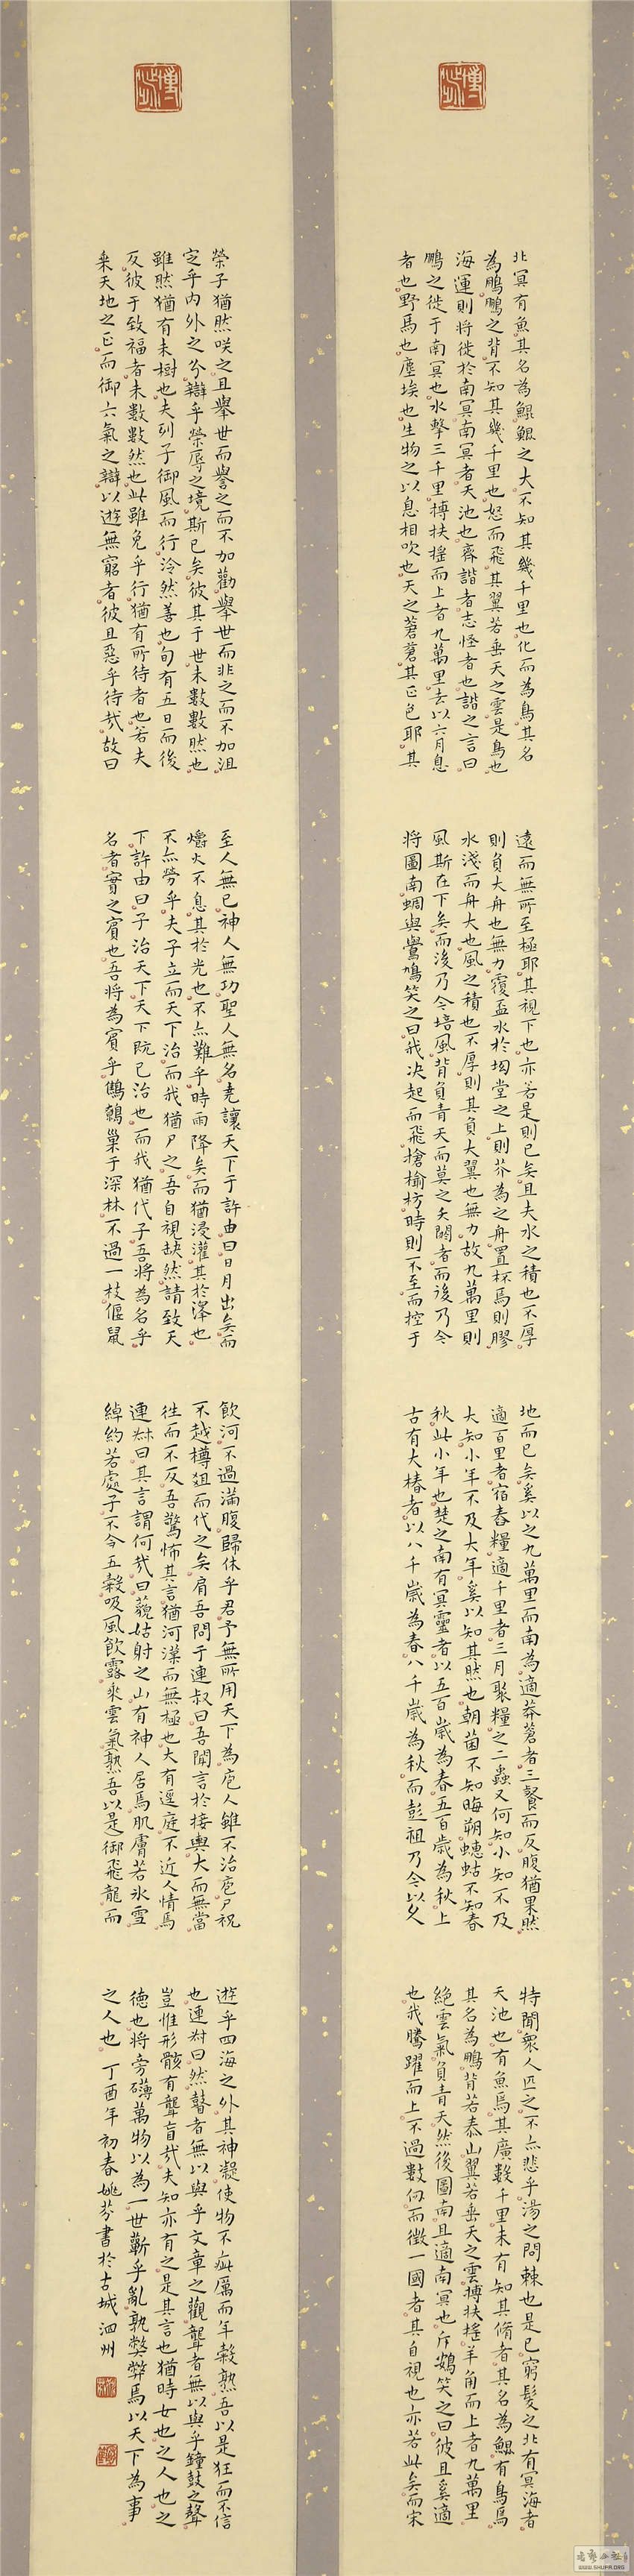 北冥有魚其名為鯤鯤之大不知其幾千里也化而為鳥其名
為鵬鵬之背不知其幾千里也怒而飛其翼若垂天之雲是鳥也
海運則將徙於南冥南冥者天池也齊諧者志怪者也諧之言曰
鵬之徙于南冥也水擊三千里摶扶搖而上者九萬里去以六月息
者也野馬也塵埃也生物之以息相吹也天之蒼蒼其正色耶其
遠而無所至極耶其視下也亦若是則已矣且夫水之積也不厚
則負大舟也無力覆盃水於坳堂之上則芥為之舟置杯焉則膠
水淺而舟大也風之積也不厚則其負大翼也無力故九萬里則
風斯在下矣而後乃今培風背負青天而莫之夭閼者而後乃今
將圖南蜩與鷽鳩笑之曰我決起而飛搶榆枋時則不至而控于
地而已矣奚以之九萬里而南為適莽蒼者三餐而反腹猶果然
適百里者宿舂糧適千里者三月聚糧之二蟲又何知小知不及
大知小年不及大年奚以知其然也朝菌不知晦朔蟪蛄不知春
秋此小年也楚之南有冥靈者以五百歲為春五百歲為秋上
古有大椿者以八千歲為春八千歲為秋而彭祖乃今以久
特聞眾人匹之不亦悲乎湯之問棘也是已窮髮之北有冥海者
天池也有魚焉其廣數千里未有知其脩者其名為鯤有鳥焉
其名為鵬背若泰山翼若垂天之雲摶扶搖羊角而上者九萬里
絕雲氣負青天然後圖南且適南冥也斥鴳笑之曰彼且奚適
也我騰躍而上不過數仞而徵一國者其自視也亦若此矣而宋
榮子猶然咲之且舉世而譽之而不加勸舉世而非之而不加沮
定乎內外之分辯乎榮辱之境斯已矣彼其于世未數數然也
雖然猶有未樹也夫列子御風而行泠然善也旬有五日而後
反彼于致福者未數數然也此雖免乎行猶有所待者也若夫
乘天地之正而御六氣之辯以遊無窮者彼且惡乎待哉故曰
至人無已神人無功聖人無名堯讓天下于許由曰日月出矣而
爝火不息其於光也不亦難乎時雨降矣而猶浸灌其於澤也
不亦勞乎夫子立而天下治而我猶尸之吾自視缺然請致天
下許由曰子治天下天下既已治也而我猶代子吾將為名乎
名者實之賓也吾將為賓乎鷦鷯巢于深林不過一枝偃鼠
飲河不過滿腹歸休乎君予無所用天下為庖人雖不治庖尸祝
不越樽俎而代之矣肩吾問于連叔曰吾聞言於接輿大而無當
往而不反吾驚怖其言猶河漢而無極也大有逕庭不近人情焉
連叔曰其言謂何哉曰藐姑射之山有神人居焉肌膚若冰雪
綽約若處子不食五穀吸風飲露乘雲氣御飛龍而
遊乎四海之外其神凝使物不疵厲而年穀熟吾以是狂而不信
也連叔曰然瞽者無以與乎文章之觀聾者無以與乎鐘鼓之聲
豈惟形骸有聾盲哉夫知亦有之是其言也猶時女也之人也之
德也將旁礴萬物以為一世蘄乎亂孰弊弊焉以天下為事
之人也 丁酉年初春姚芬書於古城泗州
WWW.SHUFA.ORG